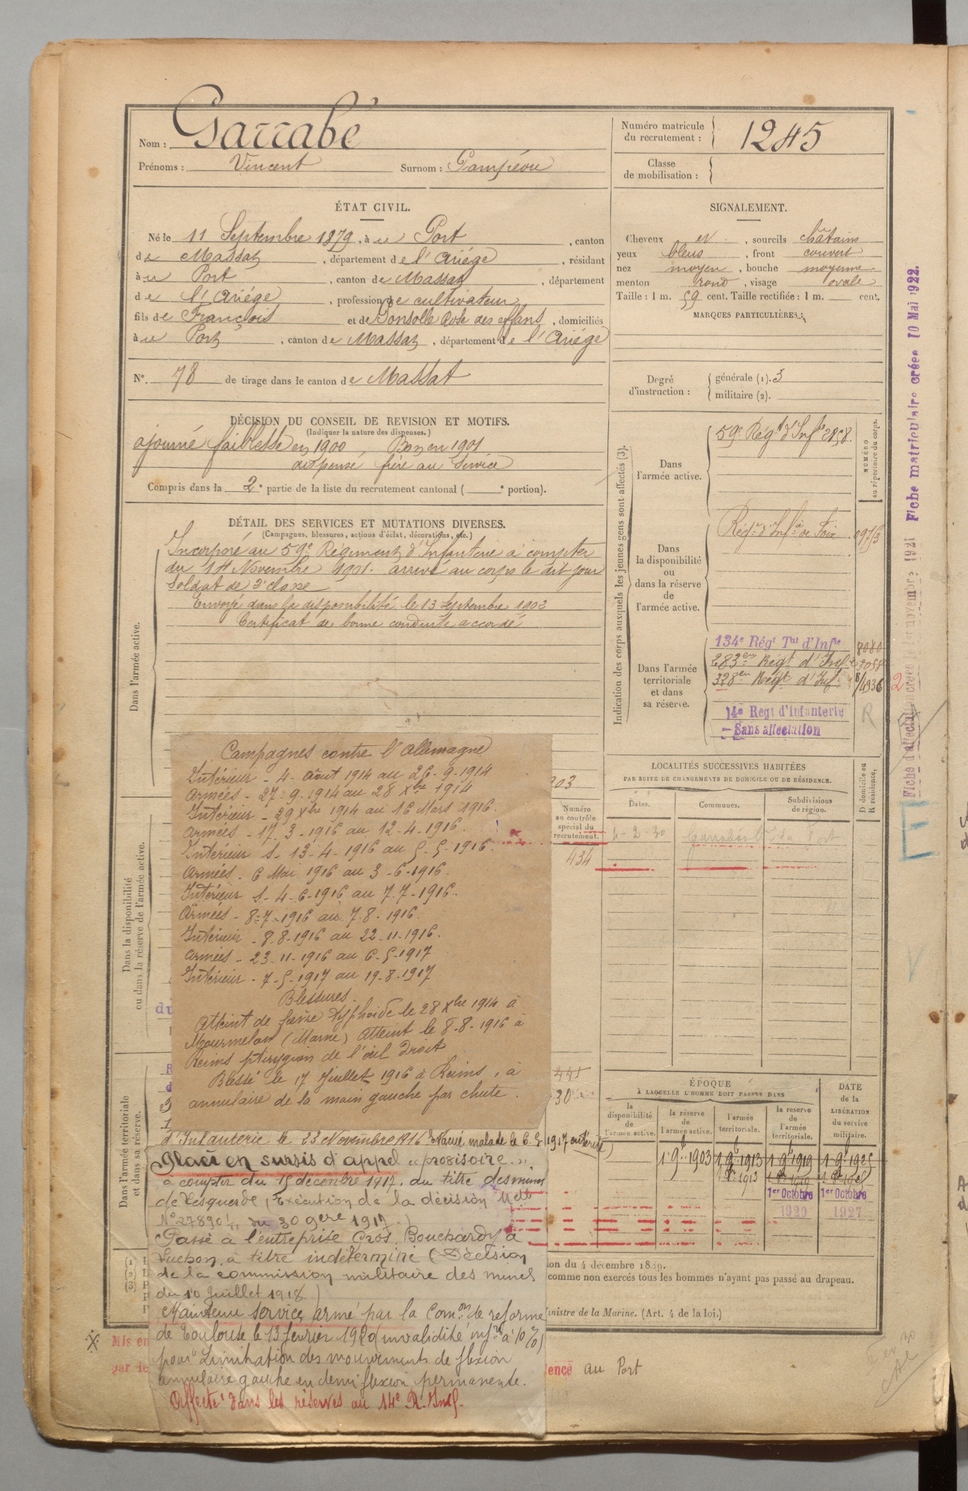 Nom : Garrabé
Prénoms : Vincent Surnom : Gampéou
Numéro matricule du recrutement : 1245
Classe de mobilisation :
ÉTAT CIVIL.
Né le 11 Septembre 1879, à u Port, canton
de Massat, département de l'Ariége, résidant
à u Port, canton de Massat, département
de l'Ariége, profession de cultivateur
fils de François et de Donsolle Rose des enfans, domiciliés
à u Port, canton de Massat, département de l'Ariége
N°. 78 de tirage dans le canton de Massat
SIGNALEMENT.
Cheveux et , sourcils châtains
yeux bleus , front couvert
nez moyen , bouche moyenne
menton rond , visage ovale
Taille : 1 m. 59 cent. Taille rectifiée : 1 m. cent.
MARQUES PARTICULIÈRES
Degré d'instruction : générale (1). 3
militaire (2).
DÉCISION DU CONSEIL DE REVISION ET MOTIFS.
(Indiquer la nature des dispenses.)
ajourné faiblesse en 1900 Bon en 1901
dispensé frère au Service
Compris dans la 2e partie de la liste du recrutement cantonal ( e portion).
DÉTAIL DES SERVICES ET MUTATIONS DIVERSES.
(Campagnes, blessures, actions d'éclat, décorations, etc.)
Dans l'armée active.
Incorporé au 59e Régiment d'Infanterie à compter
du 14 Novembre 1901. arrivé au corps le dit jour
Soldat de 2e classe
Envoyé dans la disponibilité le 13 Septembre 1903
Certificat de bonne conduite accordé
Indication des corps auxquels les jeunes gens sont affectés (3).
NUMÉRO au répertoire du corps.
Dans l'armée active.
59e Régt d'Infie 2858
Dans la disponibilité ou dans la réserve de l'armée active.
Régt d'Infie de Foix
Dans l'armée territoriale et dans sa réserve.
134e Régt Tal d'Infie
283e Régt d'Inf
328e Régt d'Inf
14e Regt d'Infanterie
Sans affectation
Fiche matriculaire créée 10 Mai 1922.
Dans la disponibilité ou dans la réserve de l'armée active.
Campagnes contre l'Allemagne
Intérieur - 4 Août 1914 au 26-9-1914
Armées - 27-9-1914 au 28 Xbre 1914
Intérieur - 29 Xbre 1914 au 16 Mars 1916.
Armées - 17-3-1916 au 12-4-1916.
Intérieur S. 13-4-1916 au 5-5-1916.
Armées - 6 Mai 1916 au 3-6-1916.
Intérieur S. 4-6-1916 au 7-7-1916.
Armées - 8-7-1916 au 7-8-1916.
Intérieur - 8-8-1916 au 22-11-1916.
Armées - 23-11-1916 au 6-5-1917
Intérieur - 7-5-1917 au 19-8-1917
Blessures.
Atteint de fièvre typhoïde le 28 Xbre 1914 à
Mourmelon (Marne) Atteint le 8-8-1916 à
Reims ptérygion de l'œil droit
Blessé le 17 Juillet 1916 à Reims, à
annulaire de la main gauche par chute.
903
Numéro au contrôle spécial du recrutement.
434
LOCALITÉS SUCCESSIVES HABITÉES
PAR SUITE DE CHANGEMENTS DE DOMICILE OU DE RÉSIDENCE.
Dates. Communes. Subdivisions de région. D domicile ou R résidence.
6-2-30
Dans l'armée territoriale et dans sa réserve.
ÉPOQUE
À LAQUELLE L'HOMME DOIT PASSER DANS
la disponibilité de l'armée active. la réserve de l'armée active. l'armée territoriale. la réserve de l'armée territoriale. DATE DE LA LIBÉRATION du service militaire.
1 9bre 1903 1 9bre 1913 1 9bre 1919 1 9bre 1925
1er Octobre 1er Octobre
1920 1927
d'Infanterie le 23 Novembre 1916
Placé en sursis d'appel "provisoire"
à compter du 15 décembre 1917. du titre des mines
de Lesquerde, (Exécution de la décision Melle
N° 27890/ du 30 9bre 1917.)
Passé à l'entreprise Gros, Bouchardy à
Luchon, à titre indéterminé (Décision
de la commission militaire des mines
du 10 Juillet 1918)
Maintenu service armé par la Comon de réforme
de Toulouse le 13 février 1920 (invalidité infre à 10%)
pour Limitation des mouvements de flexion
annulaire gauche en demi flexion permanente.
Affecté dans les réserves au 14e R. Inf.
ion du 4 décembre 1889.
comme non exercés tous les hommes n'ayant pas passé au drapeau.
inistre de la Marine. (Art. 4 de la loi.)
Mis en
ence au Port